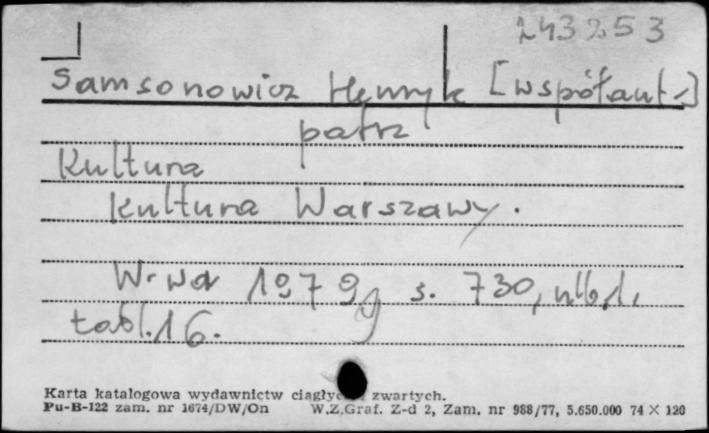 243253
Samsonowicz Henryk [współaut.]
patrz
Kultura
Kultura Warszawy.
W-wa 1979 s. 730, nlb. 1,
tabl. 16.
Karta katalogowa wydawnictw ciągłych i zwartych.
Pu-B-122 zam. nr 1674/DW/On W.Z.Graf. Z-d 2, Zam. nr 988/77, 5.650.000 74 × 120